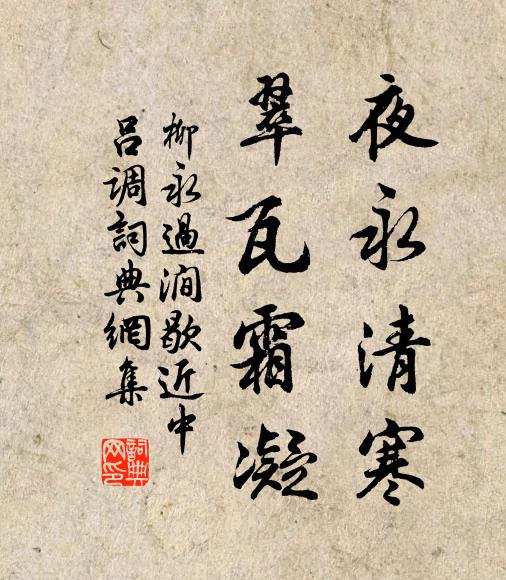 夜永清寒
翠瓦霜凝
柳永過澗歇近中
呂調詞典網集
詞典
网印